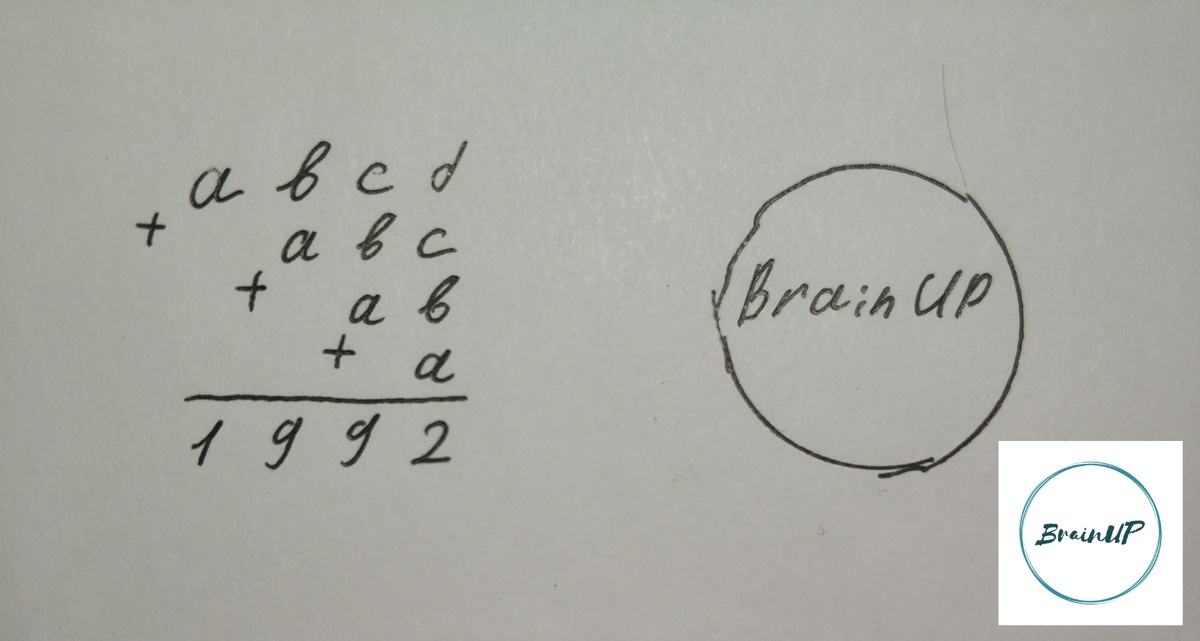 a b c d
+ a b c
+ a b
+ a
1 9 9 2
BrainUP
BrainUP